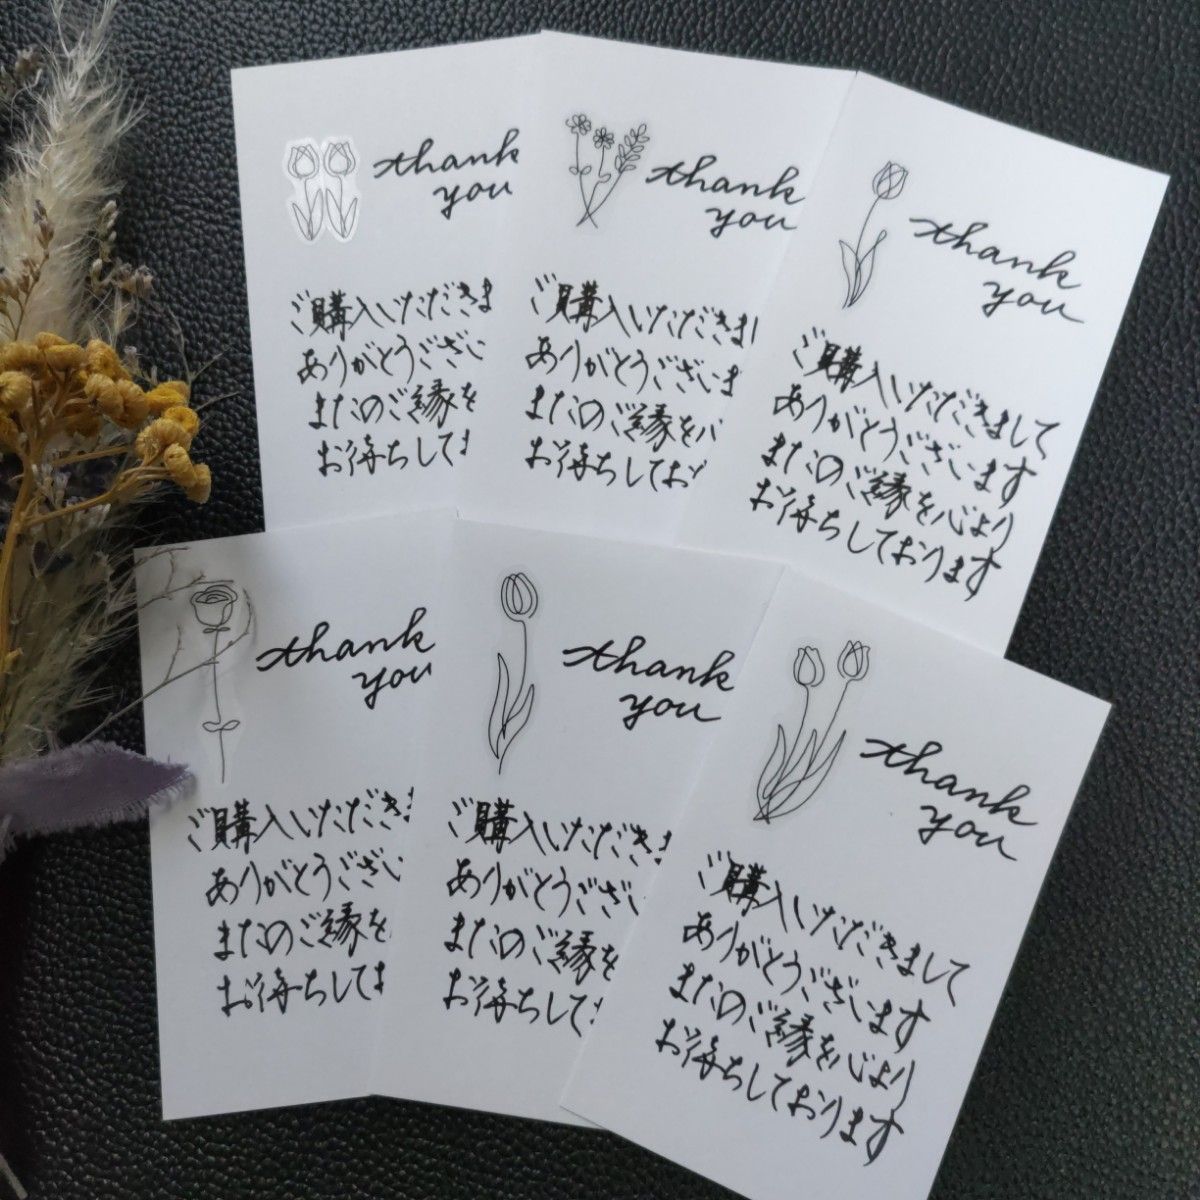 thank
you
ご購入いただきま
ありがとうござい
またのご縁を
お待ちして
thank
you
ご購入いただきまし
ありがとうございま
またのご縁を
お待ちしてお
thank
you
ご購入いただきまして
ありがとうございます
またのご縁を心より
お待ちしております
thank
you
ご購入いただきま
ありがとうござい
またのご縁を
お待ちして
thank
you
ご購入いただきま
ありがとうござい
またのご縁を
お待ちして
thank
you
ご購入いただきまして
ありがとうございます
またのご縁を心より
お待ちしております